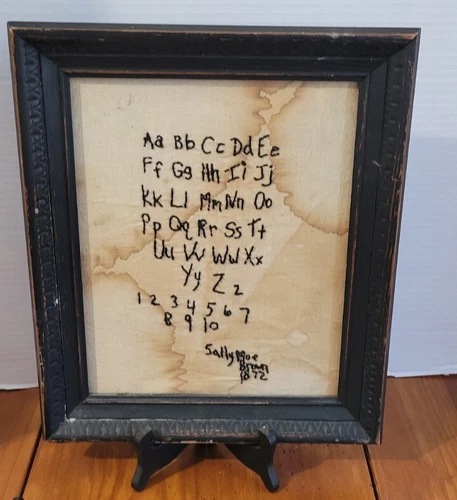 Aa Bb Cc Dd Ee
Ff Gg Hh Ii Jj
Kk Ll Mm Nn Oo
Pp Qq Rr Ss Tt
Uu Vv Ww Xx
Yy Zz
1 2 3 4 5 6 7
8 9 10
Sally Mae
Brown
1872